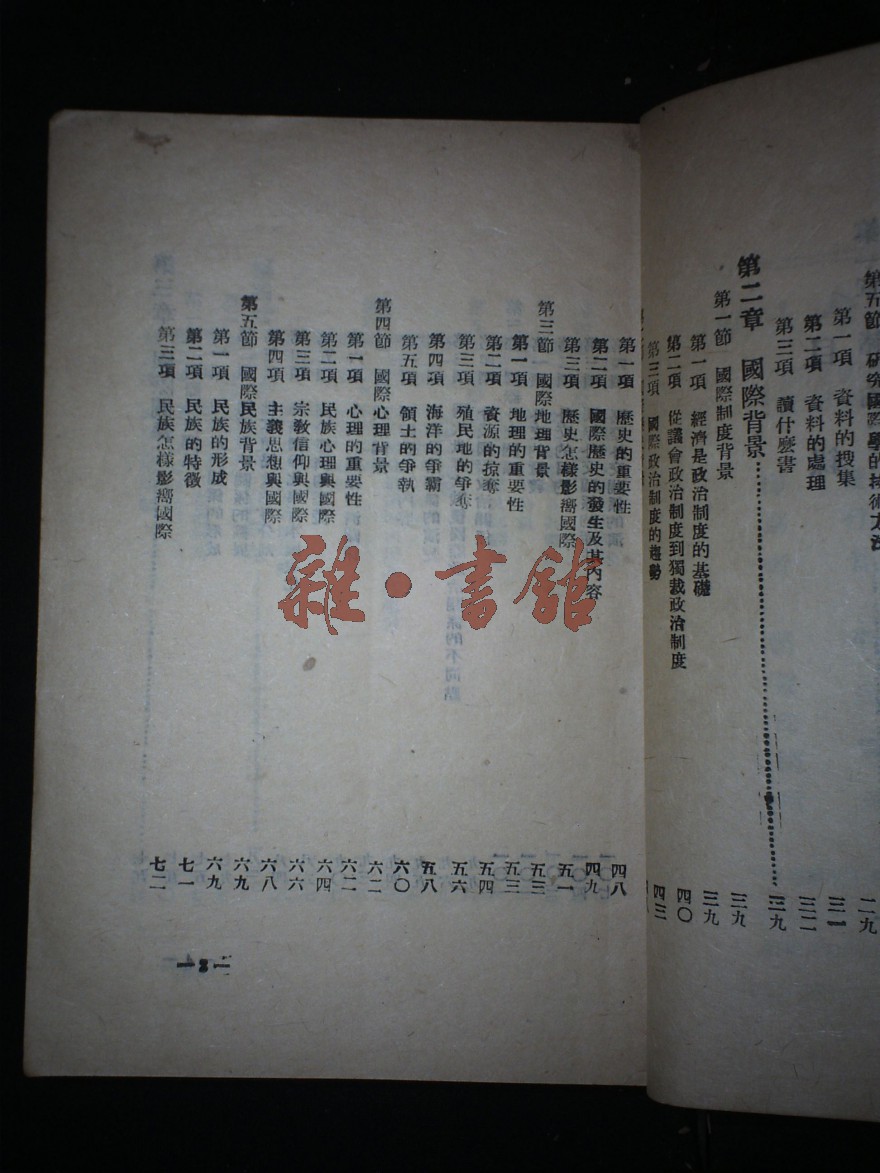 第五節 研究國際學的技術方法 二九
第一項 資料的搜集 三一
第二項 資料的處理 三二
第三項 讀什麽書 三九
第二章 國際背景 三九
第一節 國際制度背景 三九
第一項 經濟是政治制度的基礎 四〇
第二項 從議會政治制度到獨裁政治制度 四三
第三項 國際政治制度的趨勢
第一項 歷史的重要性 四八
第二項 國際歷史的發生及其內容 四九
第三項 歷史怎樣影嚮國際 五一
第三節 國際地理背景 五三
第一項 地理的重要性 五三
第二項 資源的掠奪 五四
第三項 殖民地的爭奪 五六
第四項 海洋的爭霸 五八
第五項 領土的爭執 六〇
第四節 國際心理背景 六二
第一項 心理的重要性 六二
第二項 民族心理與國際 六四
第三項 宗教信仰與國際 六六
第四項 主義思想與國際 六八
第五節 國際民族背景 六九
第一項 民族的形成 六九
第二項 民族的特徵 七一
第三項 民族怎樣影嚮國際 七二
雜·書館